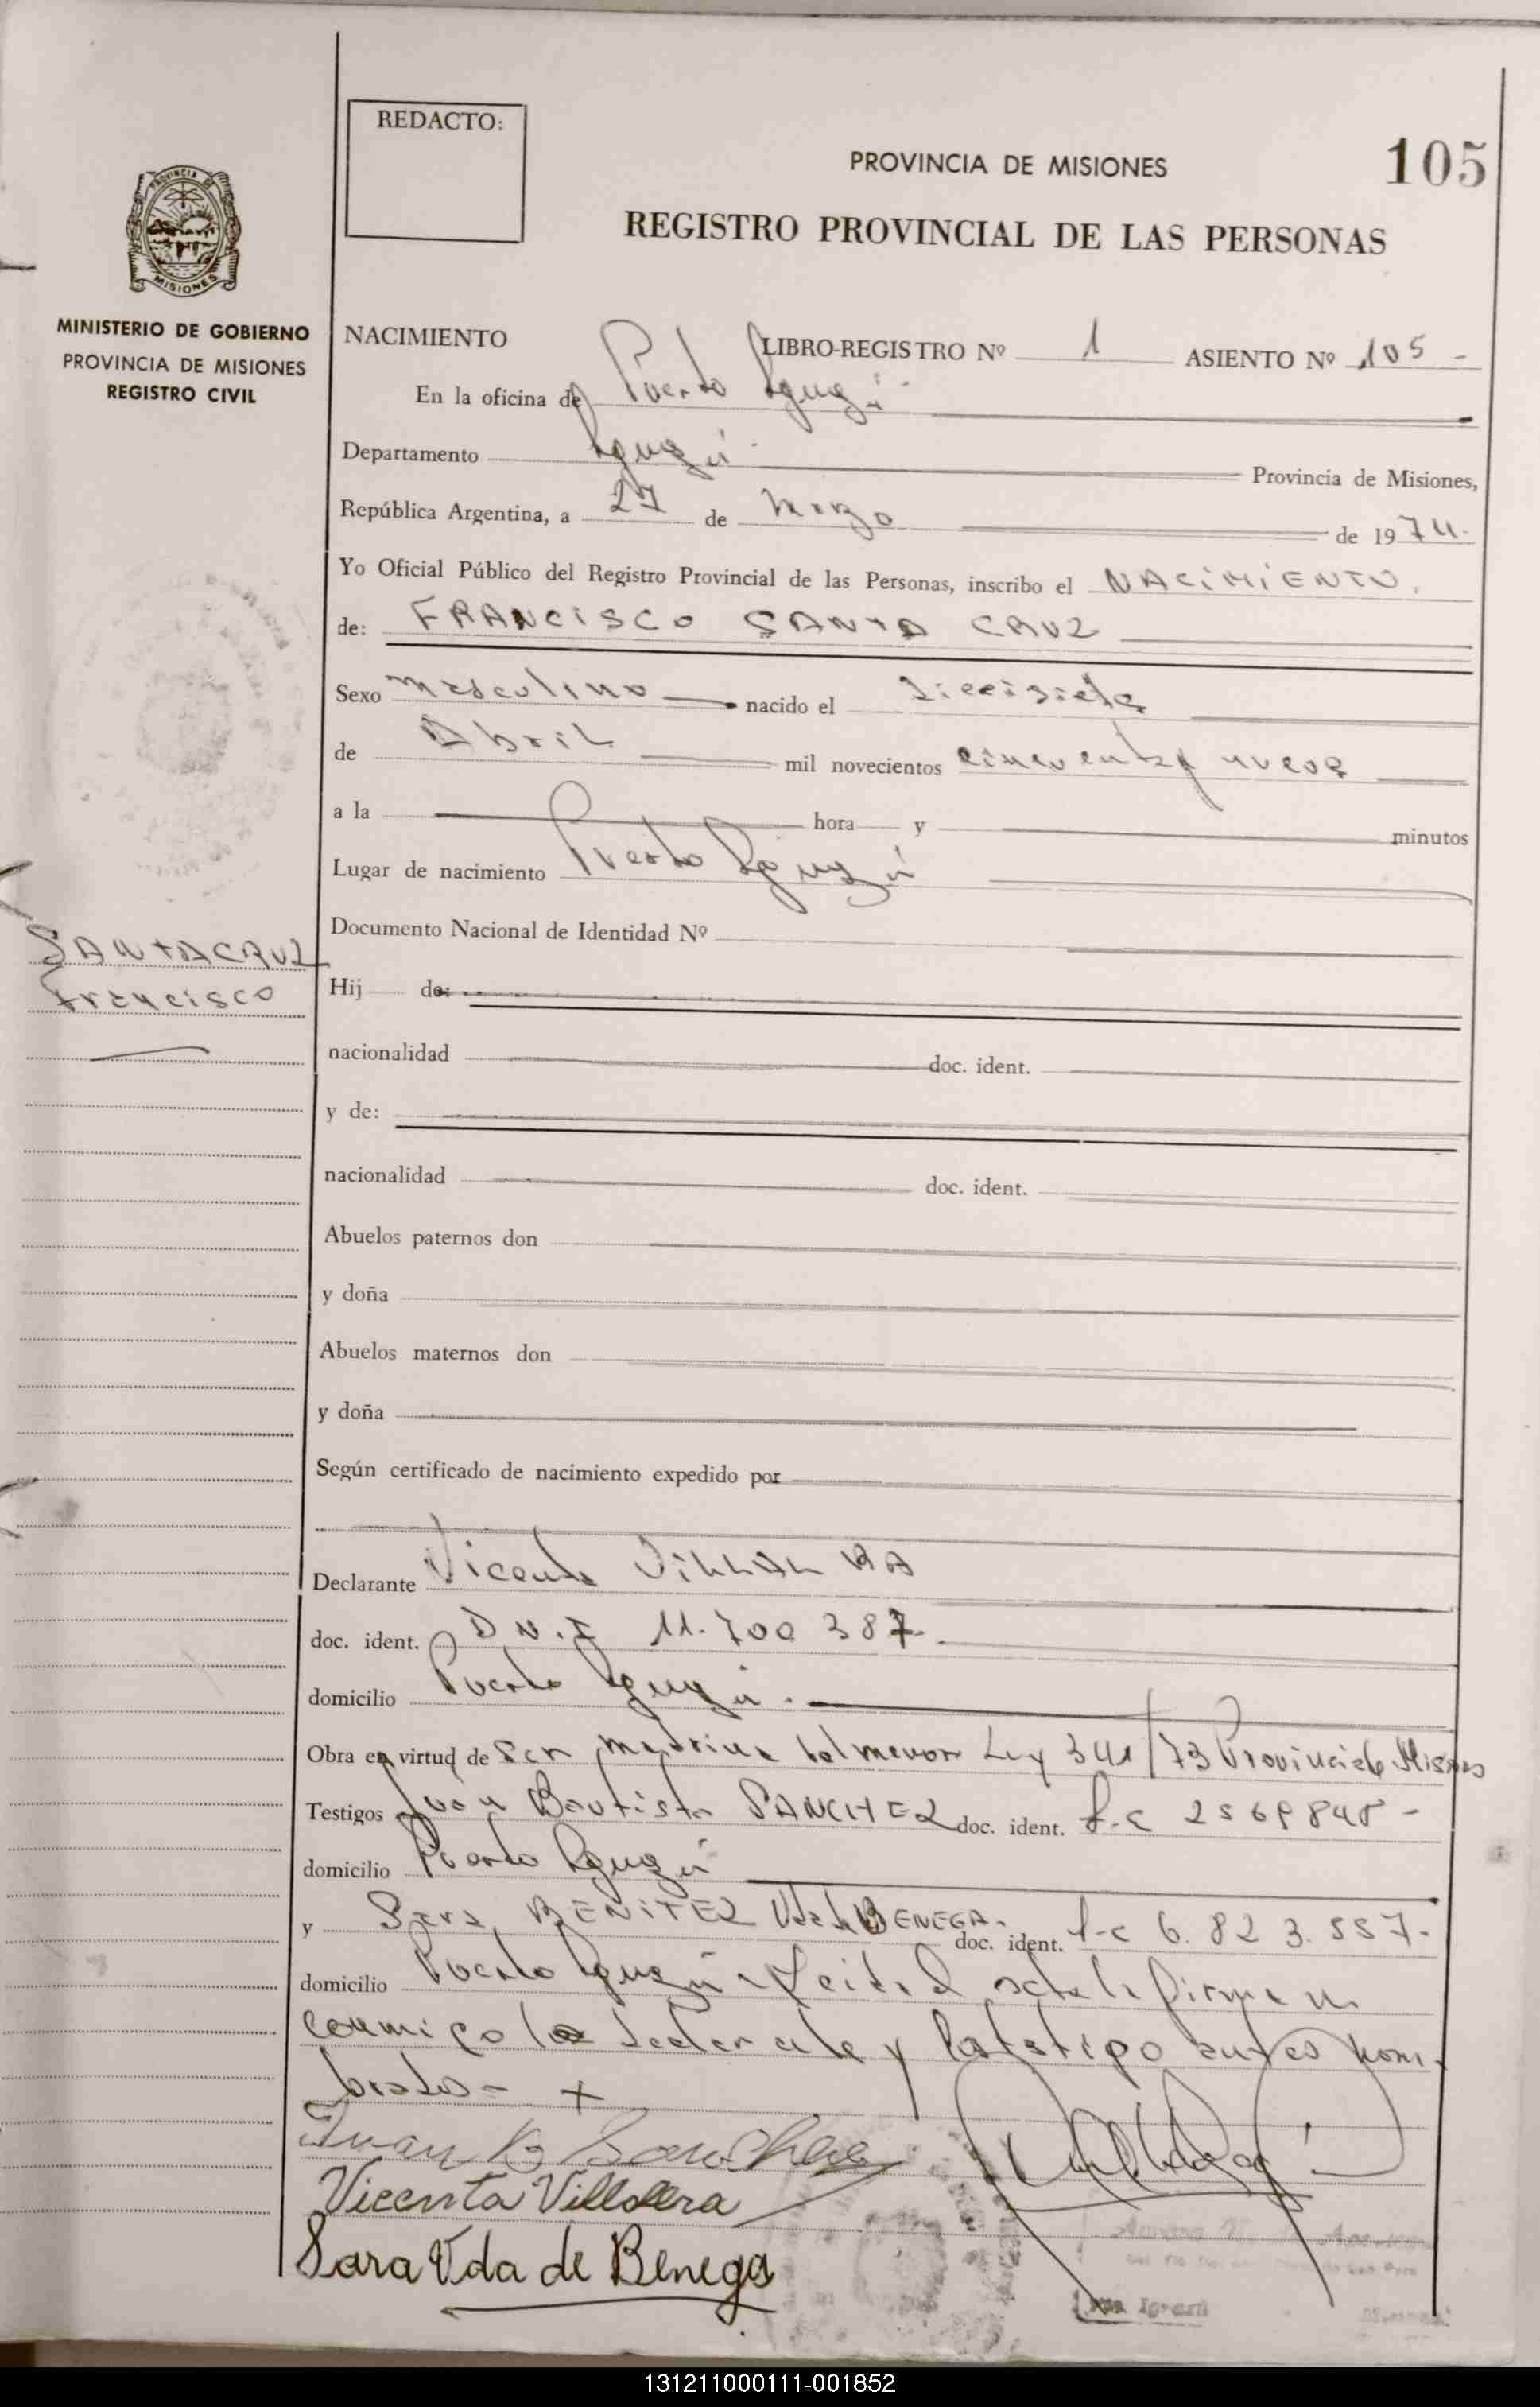 REDACTO:
PROVINCIA DE MISIONES
105
REGISTRO PROVINCIAL DE LAS PERSONAS
PROVINCIA DE
MISIONES
MINISTERIO DE GOBIERNO
PROVINCIA DE MISIONES
REGISTRO CIVIL
NACIMIENTO LIBRO-REGISTRO Nº 1 ASIENTO Nº 105 -
En la oficina de Puerto Iguazú
Departamento Iguazú Provincia de Misiones,
República Argentina, a 27 de Marzo de 1974.
Yo Oficial Público del Registro Provincial de las Personas, inscribo el NACIMIENTO.
de: FRANCISCO SANTA CRUZ
Sexo masculino nacido el diecisiete
de Abril mil novecientos cincuenta y nueve
a la hora y minutos
Lugar de nacimiento Puerto Iguazú
Documento Nacional de Identidad Nº
SANTACRUZ
Francisco
Hij de:
nacionalidad doc. ident.
y de:
nacionalidad doc. ident.
Abuelos paternos don
y doña
Abuelos maternos don
y doña
Según certificado de nacimiento expedido por
Declarante Vicenta VILLALBA
doc. ident. D N.I 11.700 387.
domicilio Puerto Iguazú.
Obra en virtud de Ser madrina del menor Ley 341/73 Provincia de Misiones
Testigos Juan Bautista SANCHEZ doc. ident. L.E 2569848 -
domicilio Puerto Iguazú
y Sara BENITEZ Vda de BENEGA. doc. ident. L-C 6.823.557.
domicilio Puerto Iguazú - Leida el acta la firman
conmigo la declarante y los testigo antes nom-
brados - +
Juan B Sanchez
Vicenta Villalba
Sara Vda de Benega
Iguazú
131211000111-001852